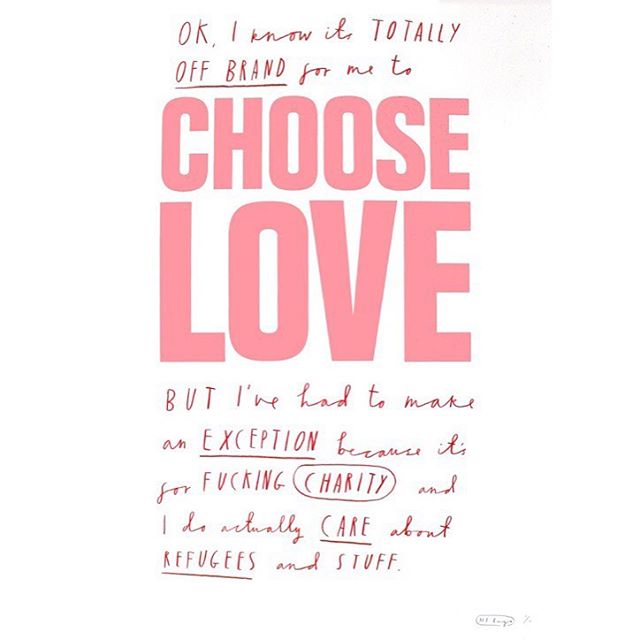 OK, I know its TOTALLY
OFF BRAND for me to
CHOOSE
LOVE
BUT I've had to make
an EXCEPTION because it's
for FUCKING CHARITY and
I do actually CARE about
REFUGEES and STUFF.